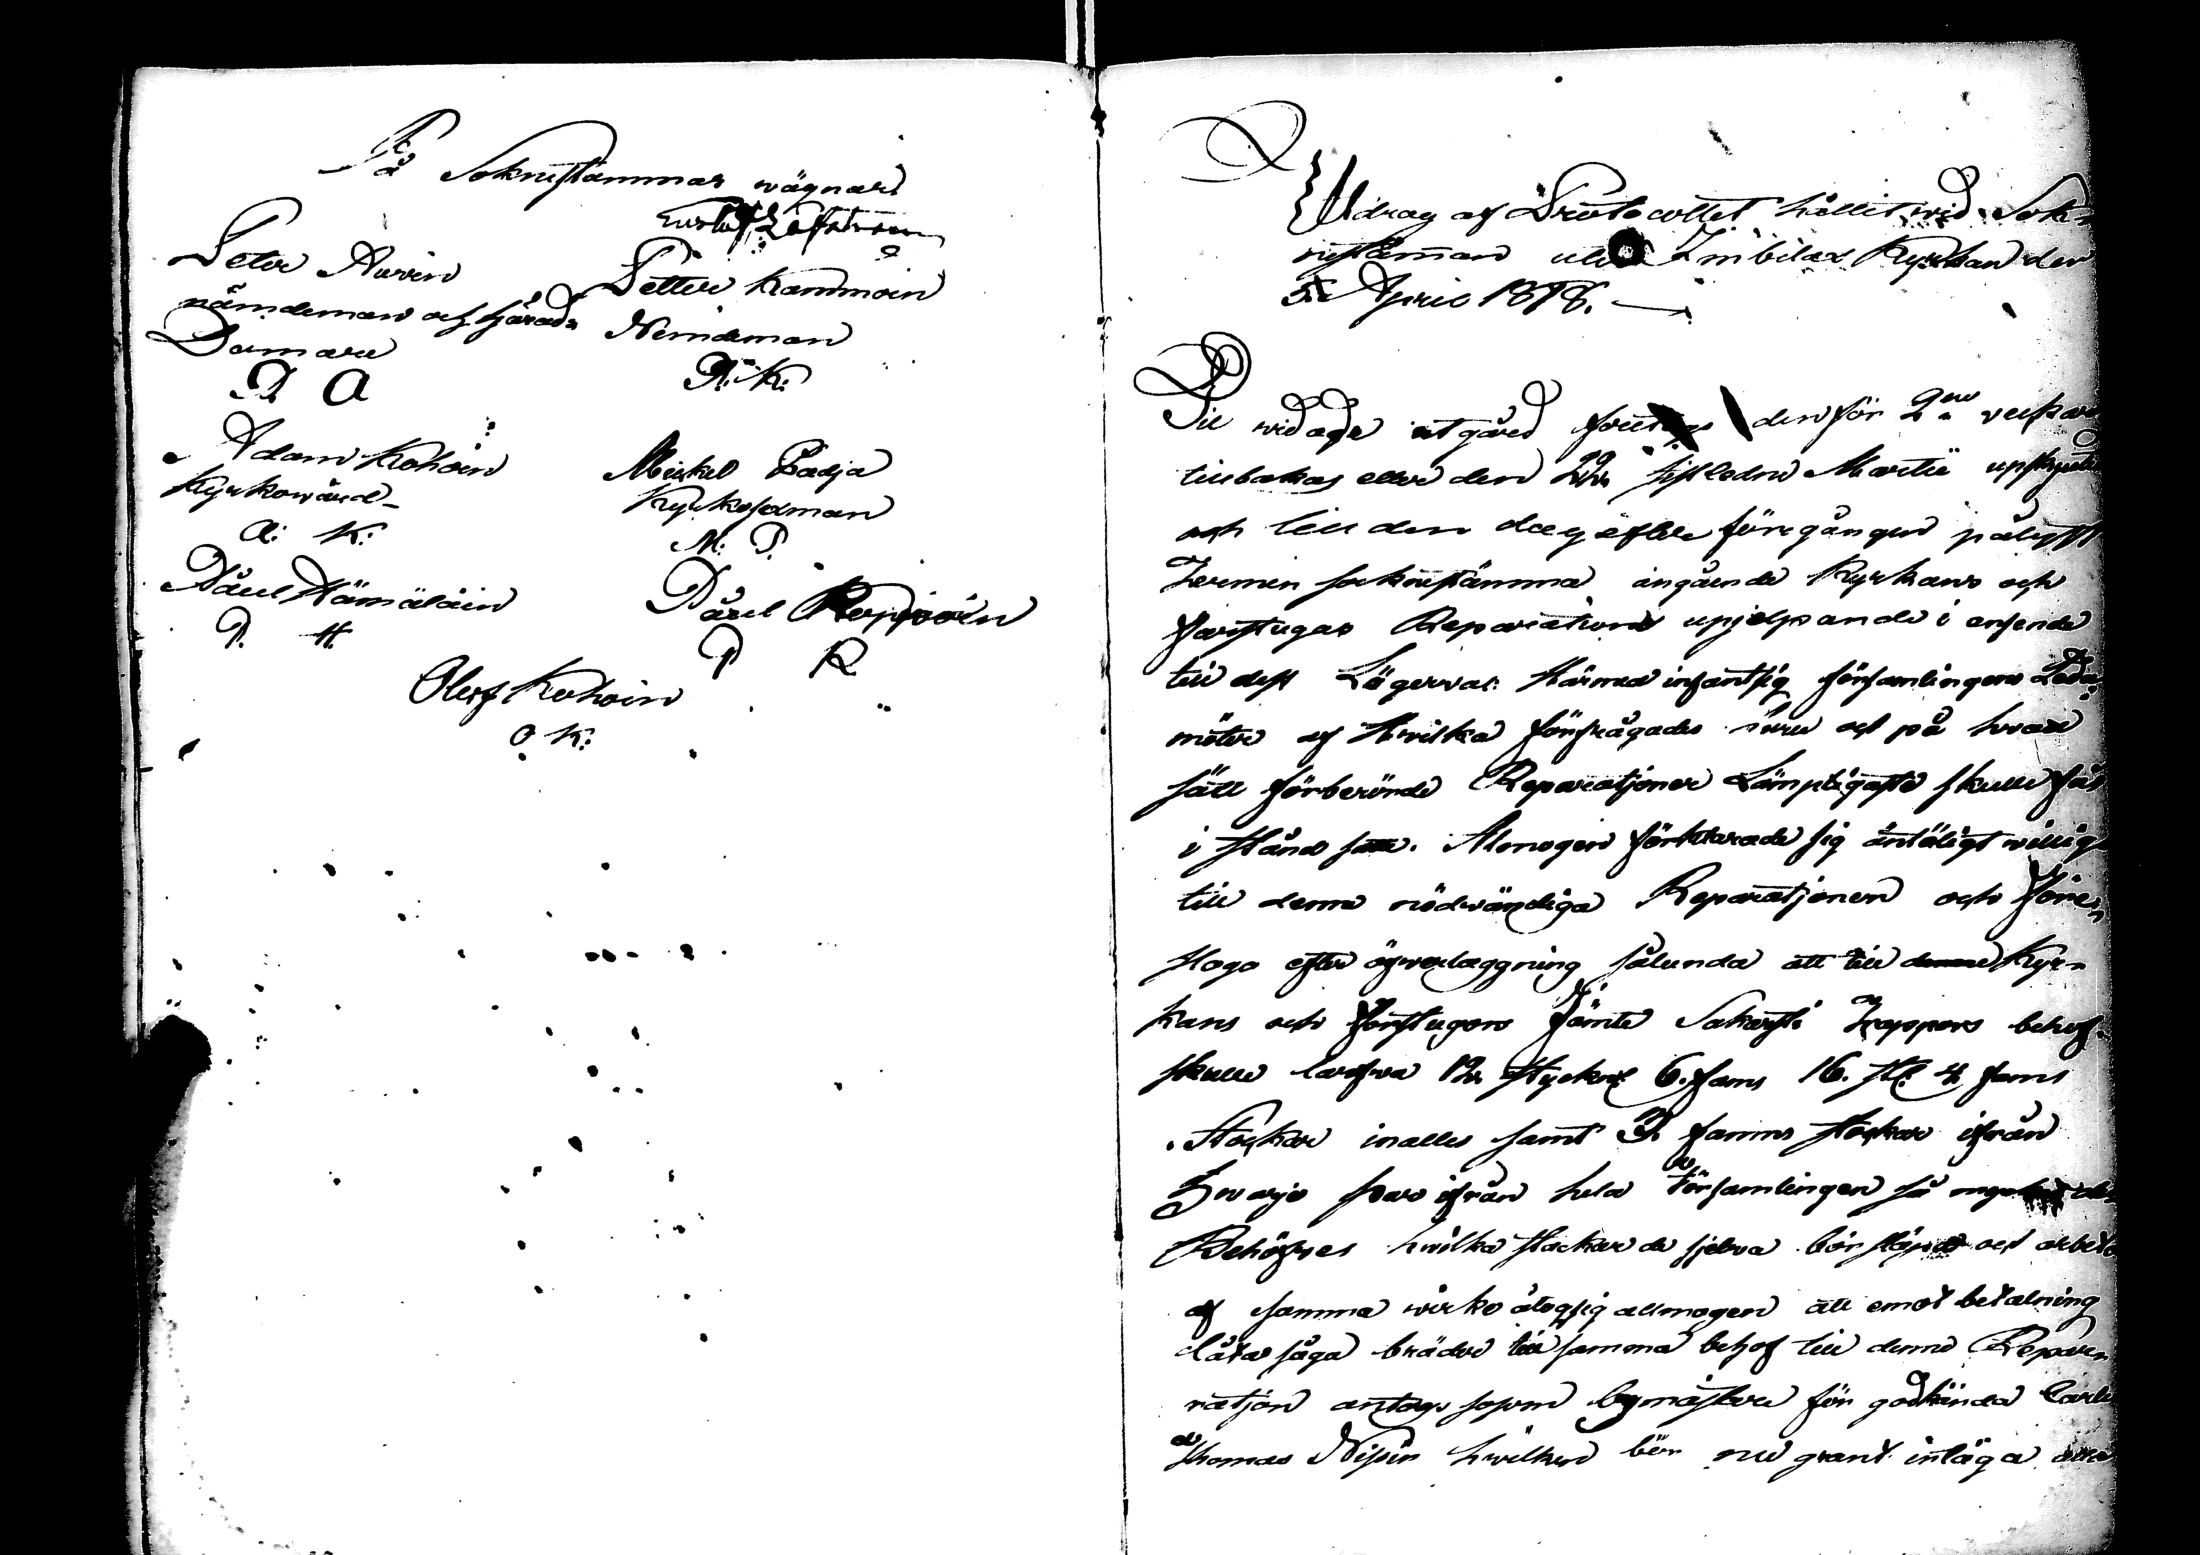 På Soknestämmas wägnar
Peter Avoin
nämdeman och härads
Domare
P. A
Petter Kammoin
Nemdeman
P. K.
Adam Kohoin
Kyrkowärd
A: K:
Mickel Padja
Kyrkosexman
M: P.
Påul Hämäläin
P. H.
Påul Repoin
P R
Olof Kohoin
O K:
Utdrag af Protocollet hållit wid Sok-
nestäman uti Imbilax Kyrkan den
5 April 1818.
Til widage åtgärd den för 2ne veckor
tillbakas eller den 22 sistledne Martii upskjute
och till den dag efter föregången pålyst
Termin soknestämma angående Kyrkans och
farstugas Reparation uphjelpande i anseende
till dess Lägervar: härmed infant sig församlingens Leda-
möter af hvilka förfrågades huru och på hvad
sätt förberörde Reparatjoner Lämpligaste skulle fås
i stånd. Almogen förklarade sig äntäligt willig
till denna nödwändiga Reparatjonen och före-
slogo efter öfverlæggning sålunda att till Kyr-
kans och förstugans Jämte Sakarsti Trappors behof
skulle lefwa 12 stycken 6. fams 16. st: 4 fams
Stockar inalles samt 3. famns stockar ifrån
hvarje ifrån hela församlingen så
Behöfves hvilka stockar de sjelva bör och arbeta
af samma wirke åtog sig allmogen att emot betalning
låta såga bräder till samma behof till denne Repara-
ratjon antogs sosom bymästare för godkända Carlen
Thomas Nissin hwilken bör nu grant intaga